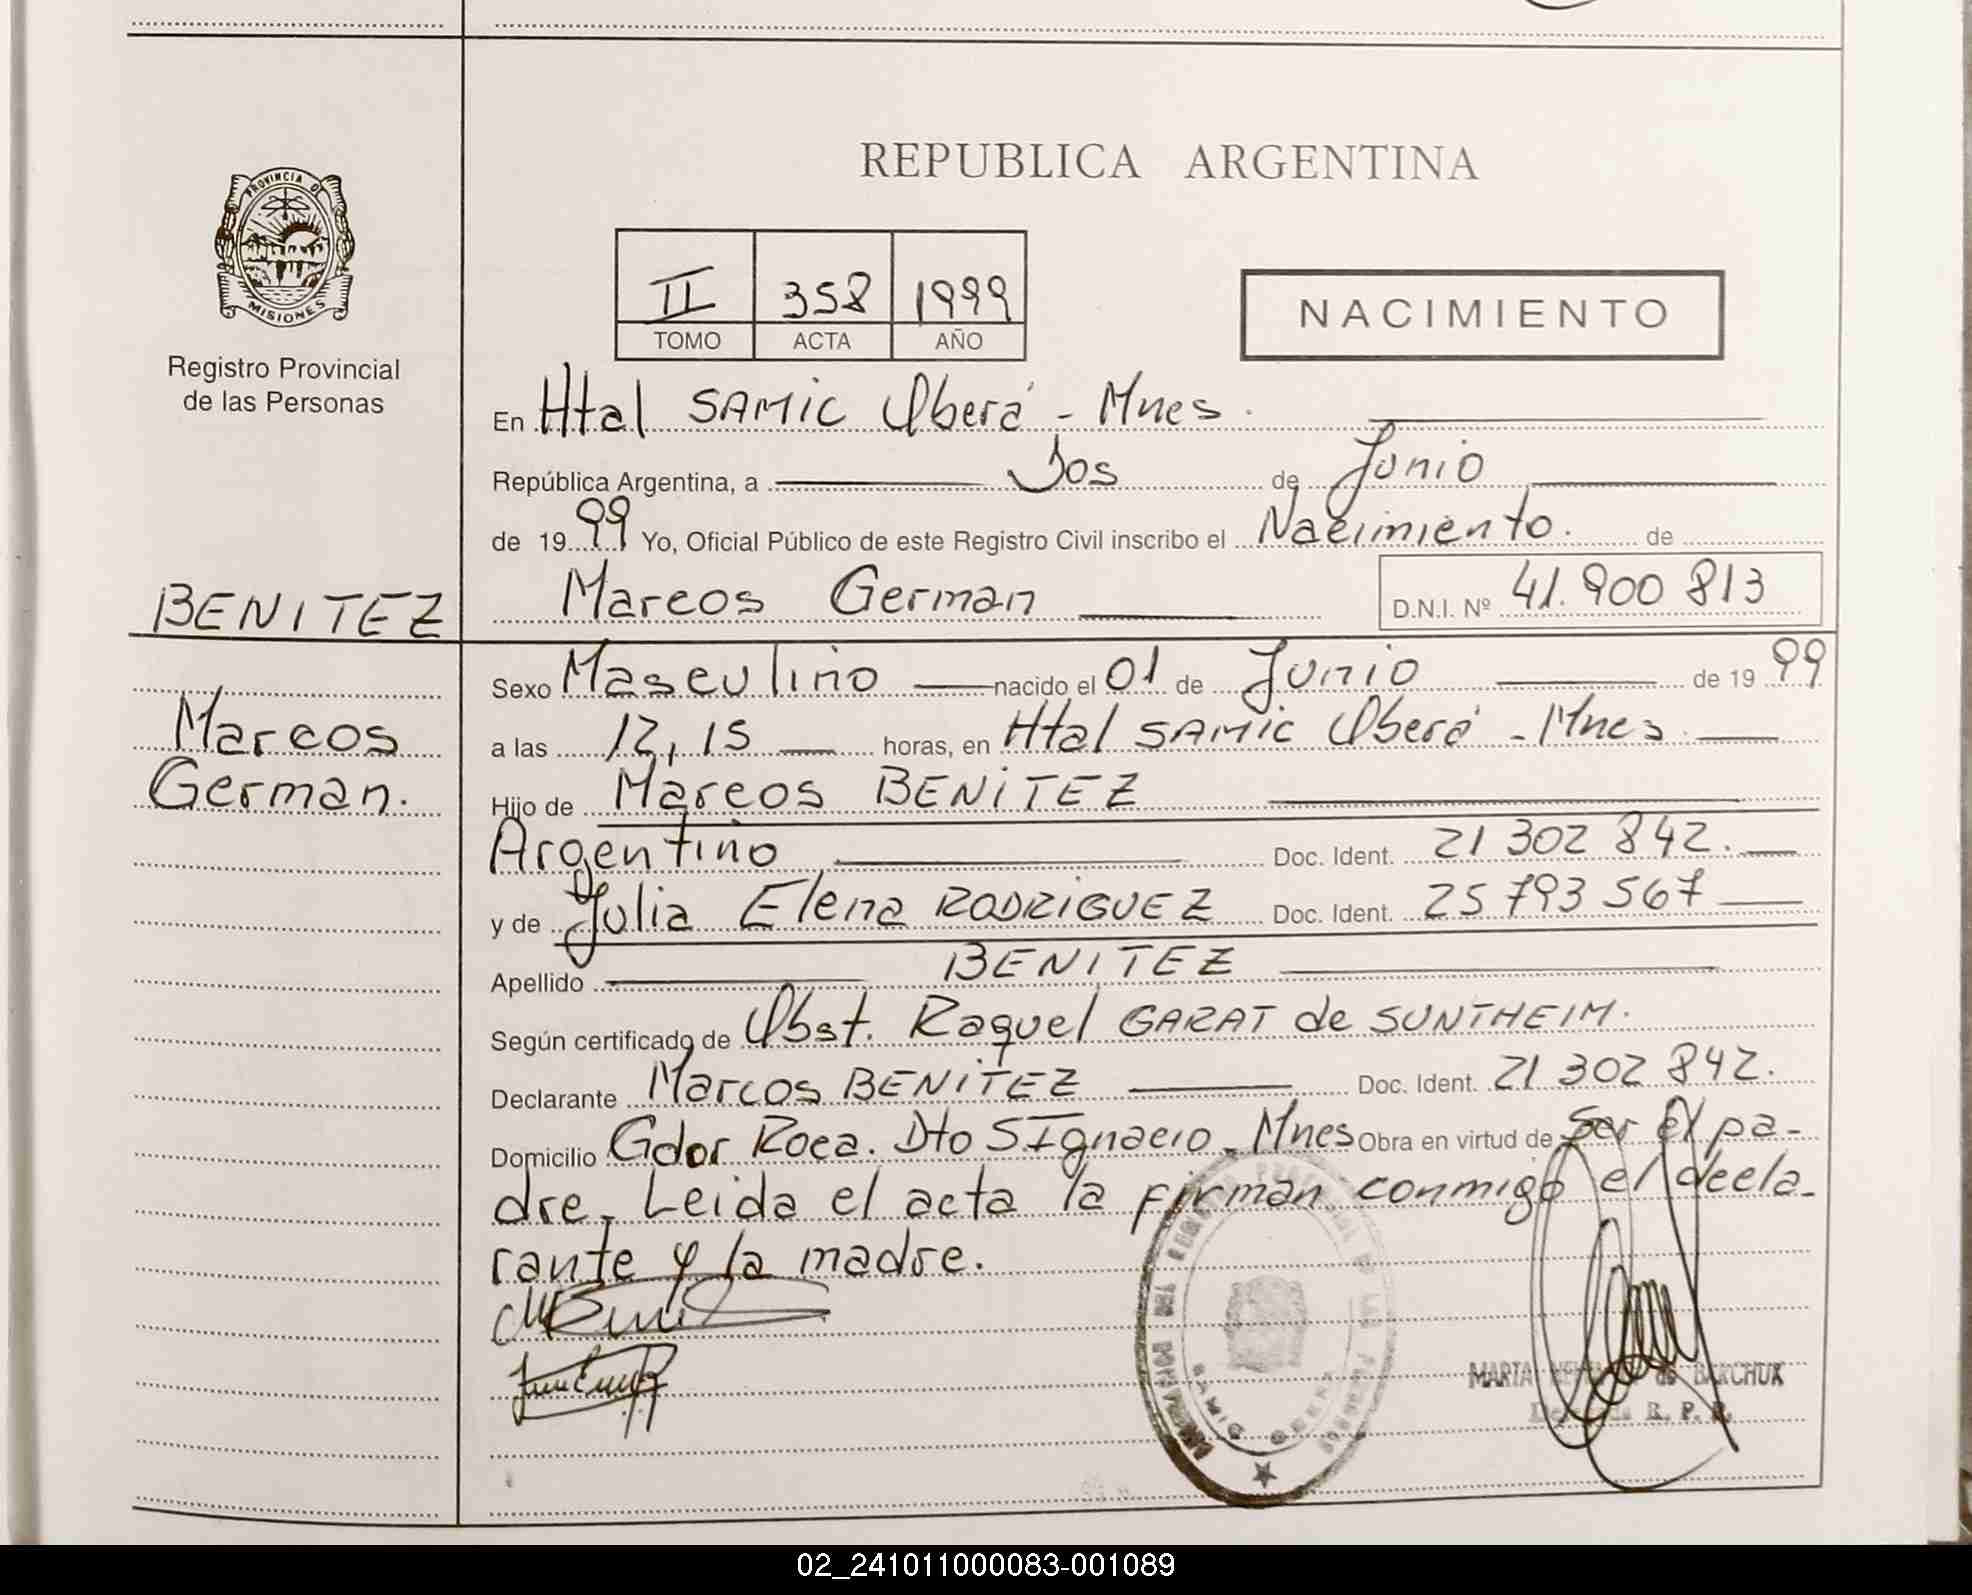 REPUBLICA ARGENTINA
PROVINCIA DE
MISIONES
Registro Provincial
de las Personas
II 358 1999
TOMO ACTA AÑO
NACIMIENTO
En Htal SAMIC Oberá - Mnes.
República Argentina, a Dos de Junio
de 1999 Yo, Oficial Público de este Registro Civil inscribo el Nacimiento. de
BENITEZ
Marcos German D.N.I. Nº 41.900 813
Sexo Masculino nacido el 01 de Junio de 1999
Marcos
a las 12,15 horas, en Htal SAMIC Oberá - Mnes.
German.
Hijo de Marcos BENITEZ
Argentino Doc. Ident. 21 302 842.
y de Julia Elena RODRIGUEZ Doc. Ident. 25 793 567
Apellido BENITEZ
Según certificado de Obst. Raquel GARAT de SUNTHEIM.
Declarante Marcos BENITEZ Doc. Ident. 21 302 842.
Domicilio Gdor Roca. Dto S Ignacio - Mnes Obra en virtud de Ser El pa-
dre. Leida el acta la firman conmigo el decla-
rante y la madre.
MARTA de BARCHUK
R. P. P.
02_241011000083-001089